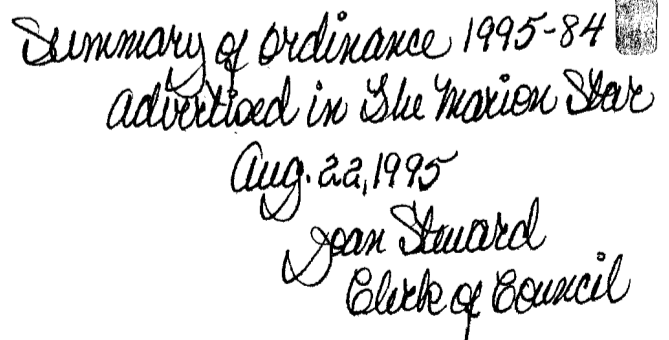 Summary of Ordinance 1995-84
advertised in The Marion Star
Aug. 22, 1995
Joan Stuard
Clerk of Council